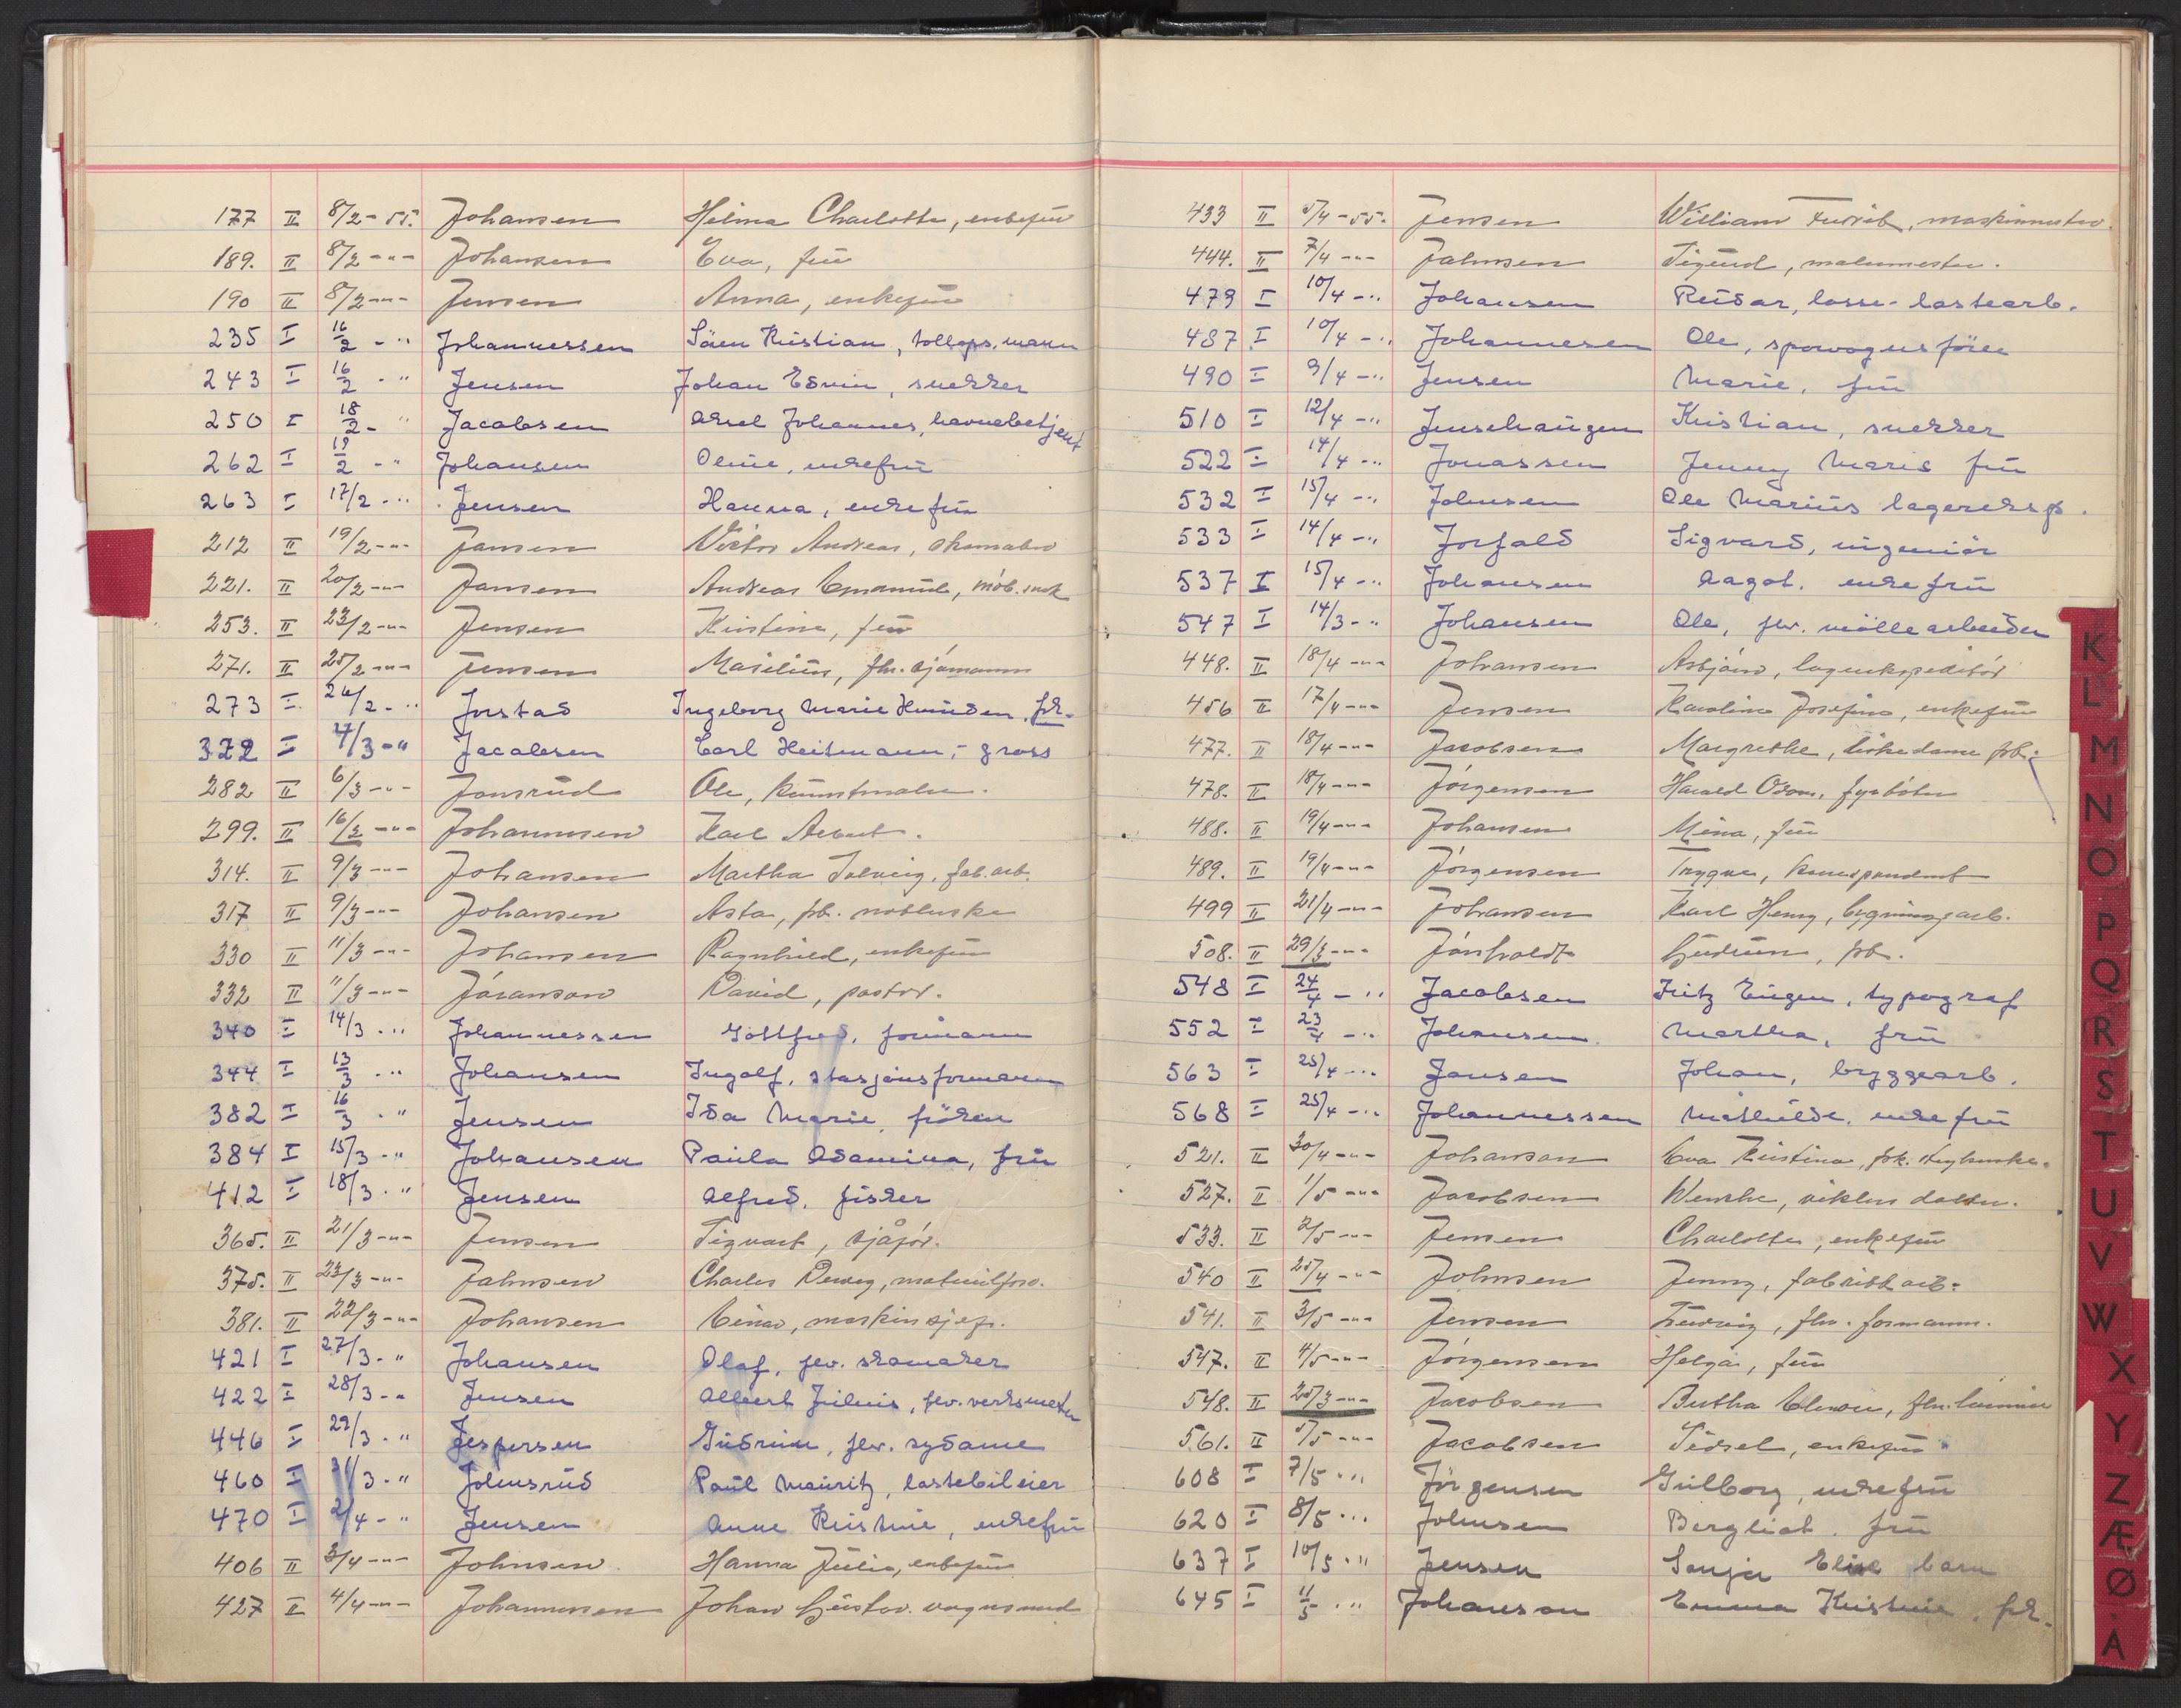 177 II 8/2-55. Johansen Helma Charlotte, enkefrü
189. II 8/2-"- Johansen Eva, frü
190 II 8/2-"- Jensen Anna, enkefrü
235 I 16/2 - " Johannessen Sören Kristian, tollops.mann
243 I 16/2 - " Jensen Johan Edvin, snekker
250 I 18/2 - " Jacobsen Aksel Johannes, havnebetjent
262 I 19/2 - " Johansen Oline, enkefrü
263 I 17/2 - " Jensen Hanna, enkefrü
212 II 19/2-"- Jansen Victor Andreas, skomaker
221. II 20/2-"- Jansen Andreas Emanuel, möb.snek
253. II 23/2-"- Jensen Kristine, frü
271. II 25/2-"- Jensen Masilius, fhv. sjömann
273 I 26/2 - " Jorstad Ingeborg Marie Hunden, frk.
372 I 4/3 - " Jacobsen Carl Heitmann, - gross
282 II 6/3-"- Jonsrud Ole, kunstmaler.
299. II 16/2-"- Johannesen Karl Albert.
314. II 9/3-"- Johansen Martha Solveig, fab.arb.
317 II 9/3-"- Johansen Asta, frk.
330 II 11/3-"- Johansen Ragnhild, enkefrü
332 II 11/3-"- Jöranson David, pastor.
340 I 14/3 - " Johannessen Gottfred, formann
344 I 13/3 - " Johansen Ingolf, stasjonsformann
382 I 16/3 - " Jensen Ida Marie, fröken
384 I 15/3 - " Johansen Paula Adamina, frü
412 I 18/3 - " Jensen Alfred, fisker
365. II 21/3-"- Jensen Sigvart, sjåför.
375. II 23/3-"- Jahnsen Charles Dewey, materialforv.
381. II 22/3-"- Johansen Einar, maskinsjef.
421 I 27/3 - " Johansen Olaf, fev. skomaker
422 I 28/3 - " Jensen Albert Julius, fev. verksmester
446 I 29/3 - " Jespersen Gudrun, fev. sydame
460 I 31/3 - " Johnsrud Paul Mauritz, lastebileier
470 I 2/4 - " Jensen Anne Kristine, enkefrü
406 II 3/4-"- Johnsen Hanna Julie, enkefrü
427 II 4/4-"- Johannesen Johan Gustav.
433 II 5/4-55. Jensen William Fredrik, maskinmester.
444. II 7/4-"- Jahnsen Sigurd, malermester.
479 I 10/4 - " Johansen Reidar, losse-lastearb.
487 I 10/4 - " Johannesen Ole, sporvognsförer
490 I 9/4 - " Jensen Marie, frü
510 I 12/4 - " Jenshaugen Kristian, snekker
522 I 14/4 - " Jonassen Jenny Marie frü
532 I 15/4 - " Johnsen Ole Marius lagereksp.
533 I 14/4 - " Jorfald Sigvard, ingeniör
537 I 15/4 - " Johansen Aagot, enkefrü
547 I 14/3 - " Johansen Ole, fev. möllearbeider
448. II 18/4-"- Johansen Asbjörn, lagerekspeditör
456 II 17/4-"- Jensen Karoline Josefine, enkefrü
477. II 18/4-"- Jacobsen Margrethe, frk.
478. II 18/4-"- Jörgensen Harald Odom, fyrböter
488. II 19/4-"- Johansen Mina, frü
489. II 19/4-"- Jörgensen Trygve, korrespondent
499 II 21/4-"- Johansen Karl Henry, bygningsarb.
508. II 29/3-"- Gudrun, frk.
548 I 24/4 - " Jacobsen Fritz Eugen, typograf
552 I 23/4 - " Johansen Martha, frü
563 I 25/4 - " Jansen Johan, bryggearb.
568 I 25/4 - " Johannessen Mathilde, enkefrü
521. II 30/4-"- Johanson Eva Kristina, frk.
527. II 1/5-"- Jacobsen Wenche, datter.
533. II 2/5-"- Jensen Charlotte, enkefrü
540 II 25/4-"- Johnsen Jenny, fabrikkarb.
541. II 3/5-"- Jensen Ludvig, fhv. formann.
547. II 4/5-"- Jörgensen Helga, frü
548. II 25/3-"- Jacobsen Bertha fhv.
561. II 5/5-"- Jacobsen Sidsel, enkefrü.
608 I 7/5 - " Jörgensen Gulborg, enkefrü
620 I 8/5 - " Johnsen Bergliot, frü
637 I 10/5 - " Jensen Sonja Elise barn
645 I 11/5 - " Johanson Emma Kristine, frk.
K
L
M
N
O
P
Q
R
S
T
U
V
W
X
Y
Z
Æ
Ø
Å